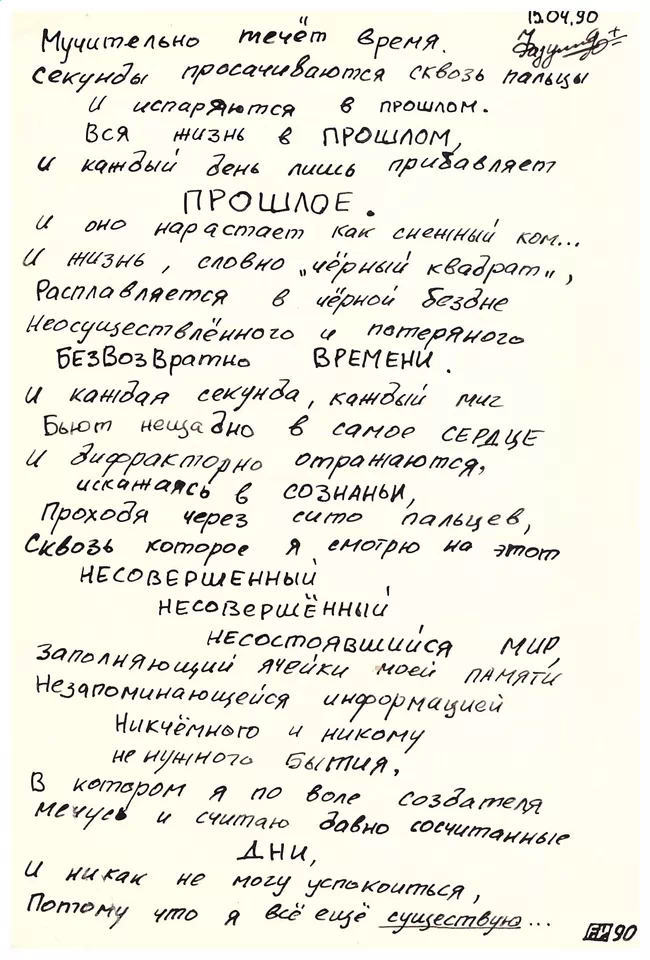 12.04.90
Мучительно течёт время.
секунды просачиваются сквозь пальцы
И испаряются в прошлом.
Вся жизнь в ПРОШЛОМ,
и каждый день лишь прибавляет
ПРОШЛОЕ.
и оно нарастает как снежный ком...
И жизнь, словно „чёрный квадрат",
Расплавляется в чёрной бездне
Неосуществлённого и потеряного
БЕЗВОЗВратно ВРЕМЕНИ.
И каждая секунда, каждый миг
Бьют нещадно в самое СЕРДЦЕ
И дифракторно отражаются,
искажаясь в СОЗНАНЬИ,
Проходя через сито пальцев,
Сквозь которое я смотрю на этот
НЕСОВЕРШЕННЫЙ
НЕСОВЕРШЁННЫЙ
НЕСОСТОЯВШИЙСЯ МИР
Заполняющий ячейки моей ПАМЯТИ
Незапоминающейся информацией
Никчёмного и никому
не нужного Бытия,
В котором я по воле создателя
мечусь и считаю давно сосчитанные
ДНИ,
И никак не могу успокоиться,
Потому что я всё ещё существую...
90